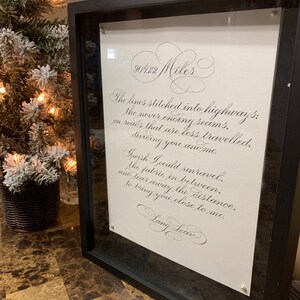 904.22 Miles
The lines stitched into highways;
the never ending seams,
on roads that are less travelled,
dividing you and me.
I wish I could unravel,
the fabric in between,
and tear away the distance,
to bring you close to me.
Lang Leav